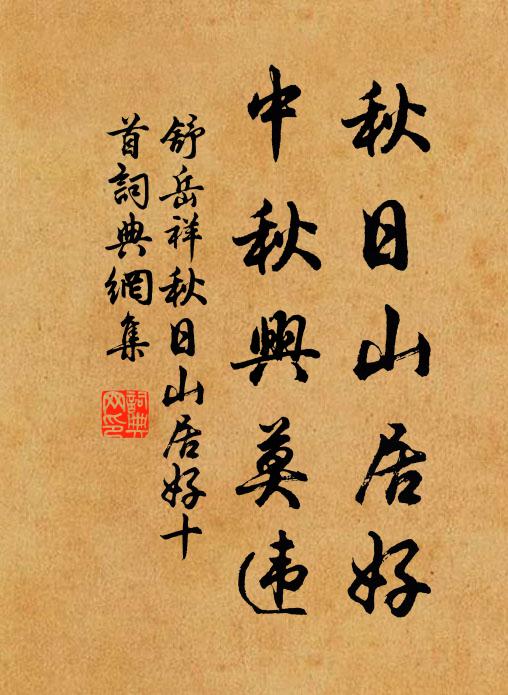 秋日山居好
中秋興莫违
舒岳祥秋日山居好十
首詞典網集
詞典
网印